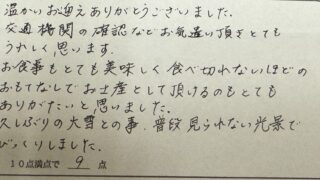 温かいお迎えありがとうございました。
交通機関の確認などお気遣い頂きとても
うれしく思います。
お食事もとても美味しく食べ切れないほどの
おもてなしでお土産として頂けるのもとても
ありがたいと思いました。
久しぶりの大雪との事、普段見られない光景で
びっくりしました。
10点満点で 9 点